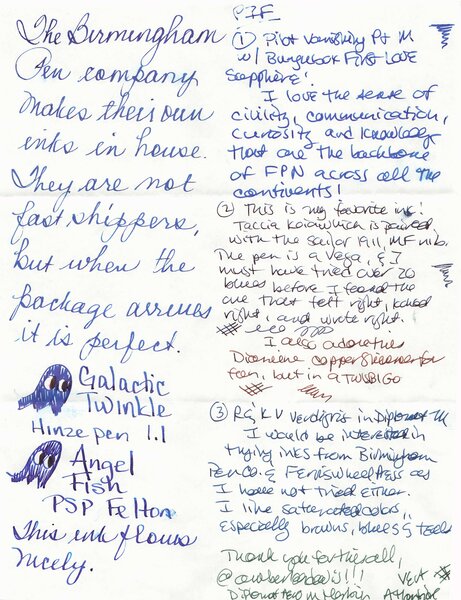 The Birmingham
Pen company
makes their own
inks in house.
They are not
fast shippers,
but when the
package arrives
it is perfect.
Galactic
Twinkle
Hinze pen 1.1
Angel
Fish
PSP Felton
This ink flows
nicely.
PIF
① Pilot Vanishing Pt M
w/ Bungubox First Love
Sapphire!
I love the sense of
civility, communication,
curiosity and knowledge
that are the backbone
of FPN across all the
continents!
② This is my favorite ink!
Taccia which is paired
with the Sailor 1911, MF nib.
The pen is a Vega, & I
must have tried over 20
blues before I found the
one that felt right, looked
right, and wrote right.
I also adore the
Diamine Copper for
teen, but in a TWSBI GO
③ R&K Verdigris in Diplomat M
I would be interested in
trying inks from Birmingham
Pen Co. & Ferris Wheel Press as
I have not tried either.
I like saturated colors,
especially browns, blues & teals
Thank you for this all,
!!!
Diplomat M